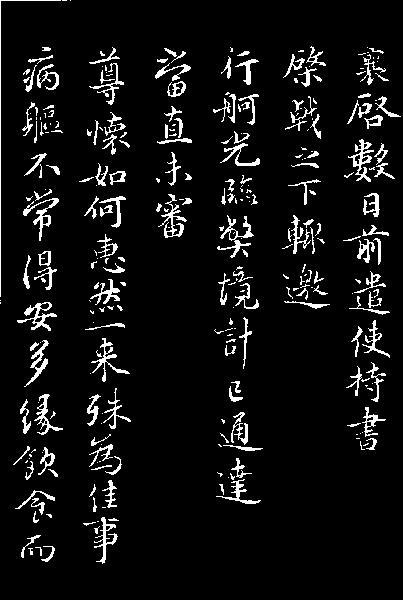 襄啓數日前遣使持書
棨戟之下輒邀
行舸光臨弊境計已通達
當直未審
尊懷如何惠然一来殊為佳事
病軀不常得安多緣飲食而